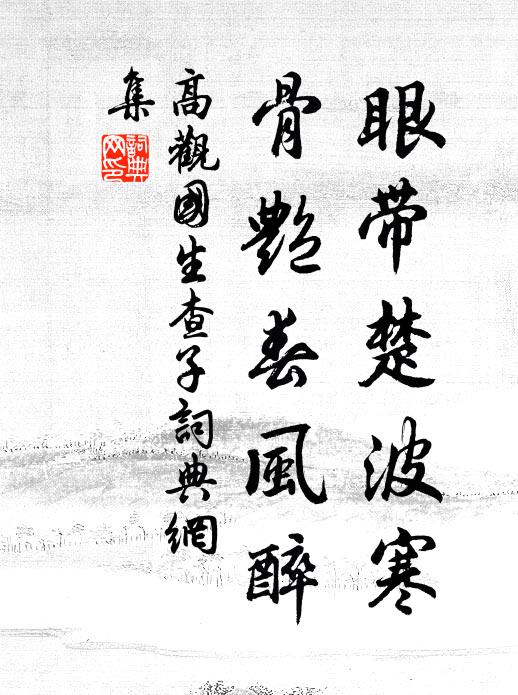 眼帶楚波寒
骨艷春風醉
高觀國生查子詞典網
集
詞典
网印